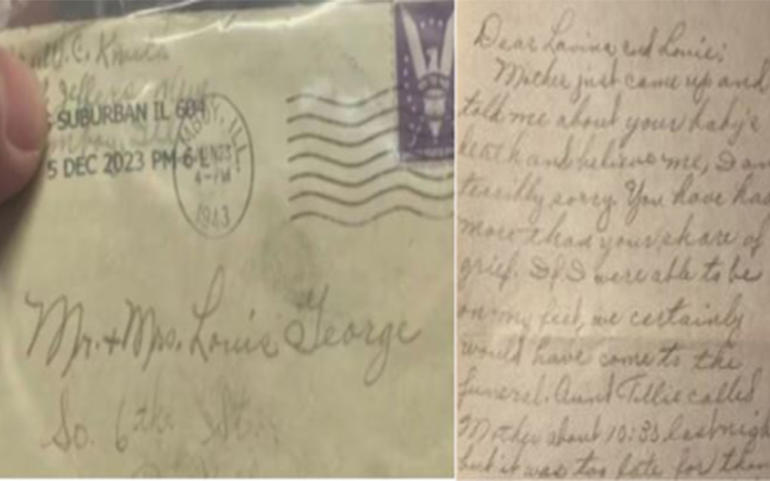 C. 
Jeffers
SUBURBAN IL 604
5 DEC 2023 PM 6 L
BOY, ILL.
JUN 23
4-PM
1943
Mr. + Mrs. Louis George
So. 6th St.
Dear Lavina and Louie:
Mother just came up and
told me about your baby's
death and believe me, I am
terribly sorry. You have had
more than your share of
grief. If I were able to be
on my feet, we certainly
would have come to the
funeral. Aunt Tillie called
Mother about 10:35 last nigh
but it was too late for them